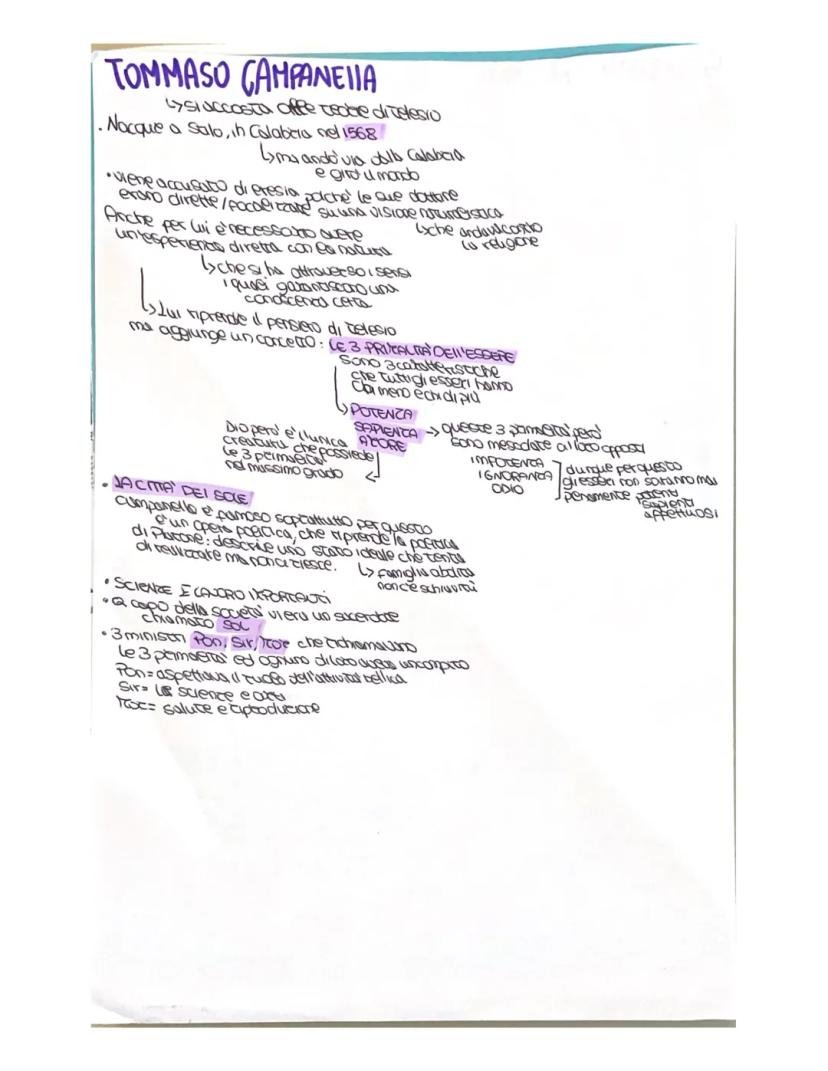 TOMMASO CAMPANELLA
↳ si accosta alle teorie di Telesio
• Nacque a Stalo, in Calabria nel 1568
↳ ma andò via dalla Calabria
e girò il mondo
• viene accusato di eresia poiché le sue dottrine
erano dirette/focalizzate su una visione naturalistica
↳ che andava contro
la religione
Anche per lui è necessario avere
un'esperienza diretta con la natura
↳ che si ha attraverso i sensi
i quali garantiscono una
conoscenza certa
↳ Lui riprende il pensiero di Telesio
ma aggiunge un concetto: LE 3 PRIMALITÀ DELL'ESSERE
sono 3 caratteristiche
che tutti gli esseri hanno
chi meno e chi di più
↳ POTENZA
SAPIENZA
AMORE
→ queste 3 primalità però
sono mescolate ai loro opposti
IMPOTENZA
IGNORANZA
ODIO
dunque per questo
gli esseri non saranno mai
pienamente potenti
sapienti
affettuosi
Dio però è l'unica
creatura che possiede
le 3 primalità
nel massimo grado
• LA CITTÀ DEL SOLE
Campanella è famoso soprattutto per questo
è un opera politica, che riprende la politica
di Platone: descrive uno stato ideale che tenta
di realizzare ma non ci riesce.
↳ famiglia abolita
non c'è schiavitù
• SCIENZE E LAVORO IMPORTANTI
• a capo della società vi era un sacerdote
chiamato SOL
• 3 ministri Pon, Sir, Mor che richiamavano
le 3 primalità ed ognuno di loro aveva un compito
Pon = aspettava il ruolo dell'attività bellica
Sir = le scienze e arti
Mor = salute e riproduzione